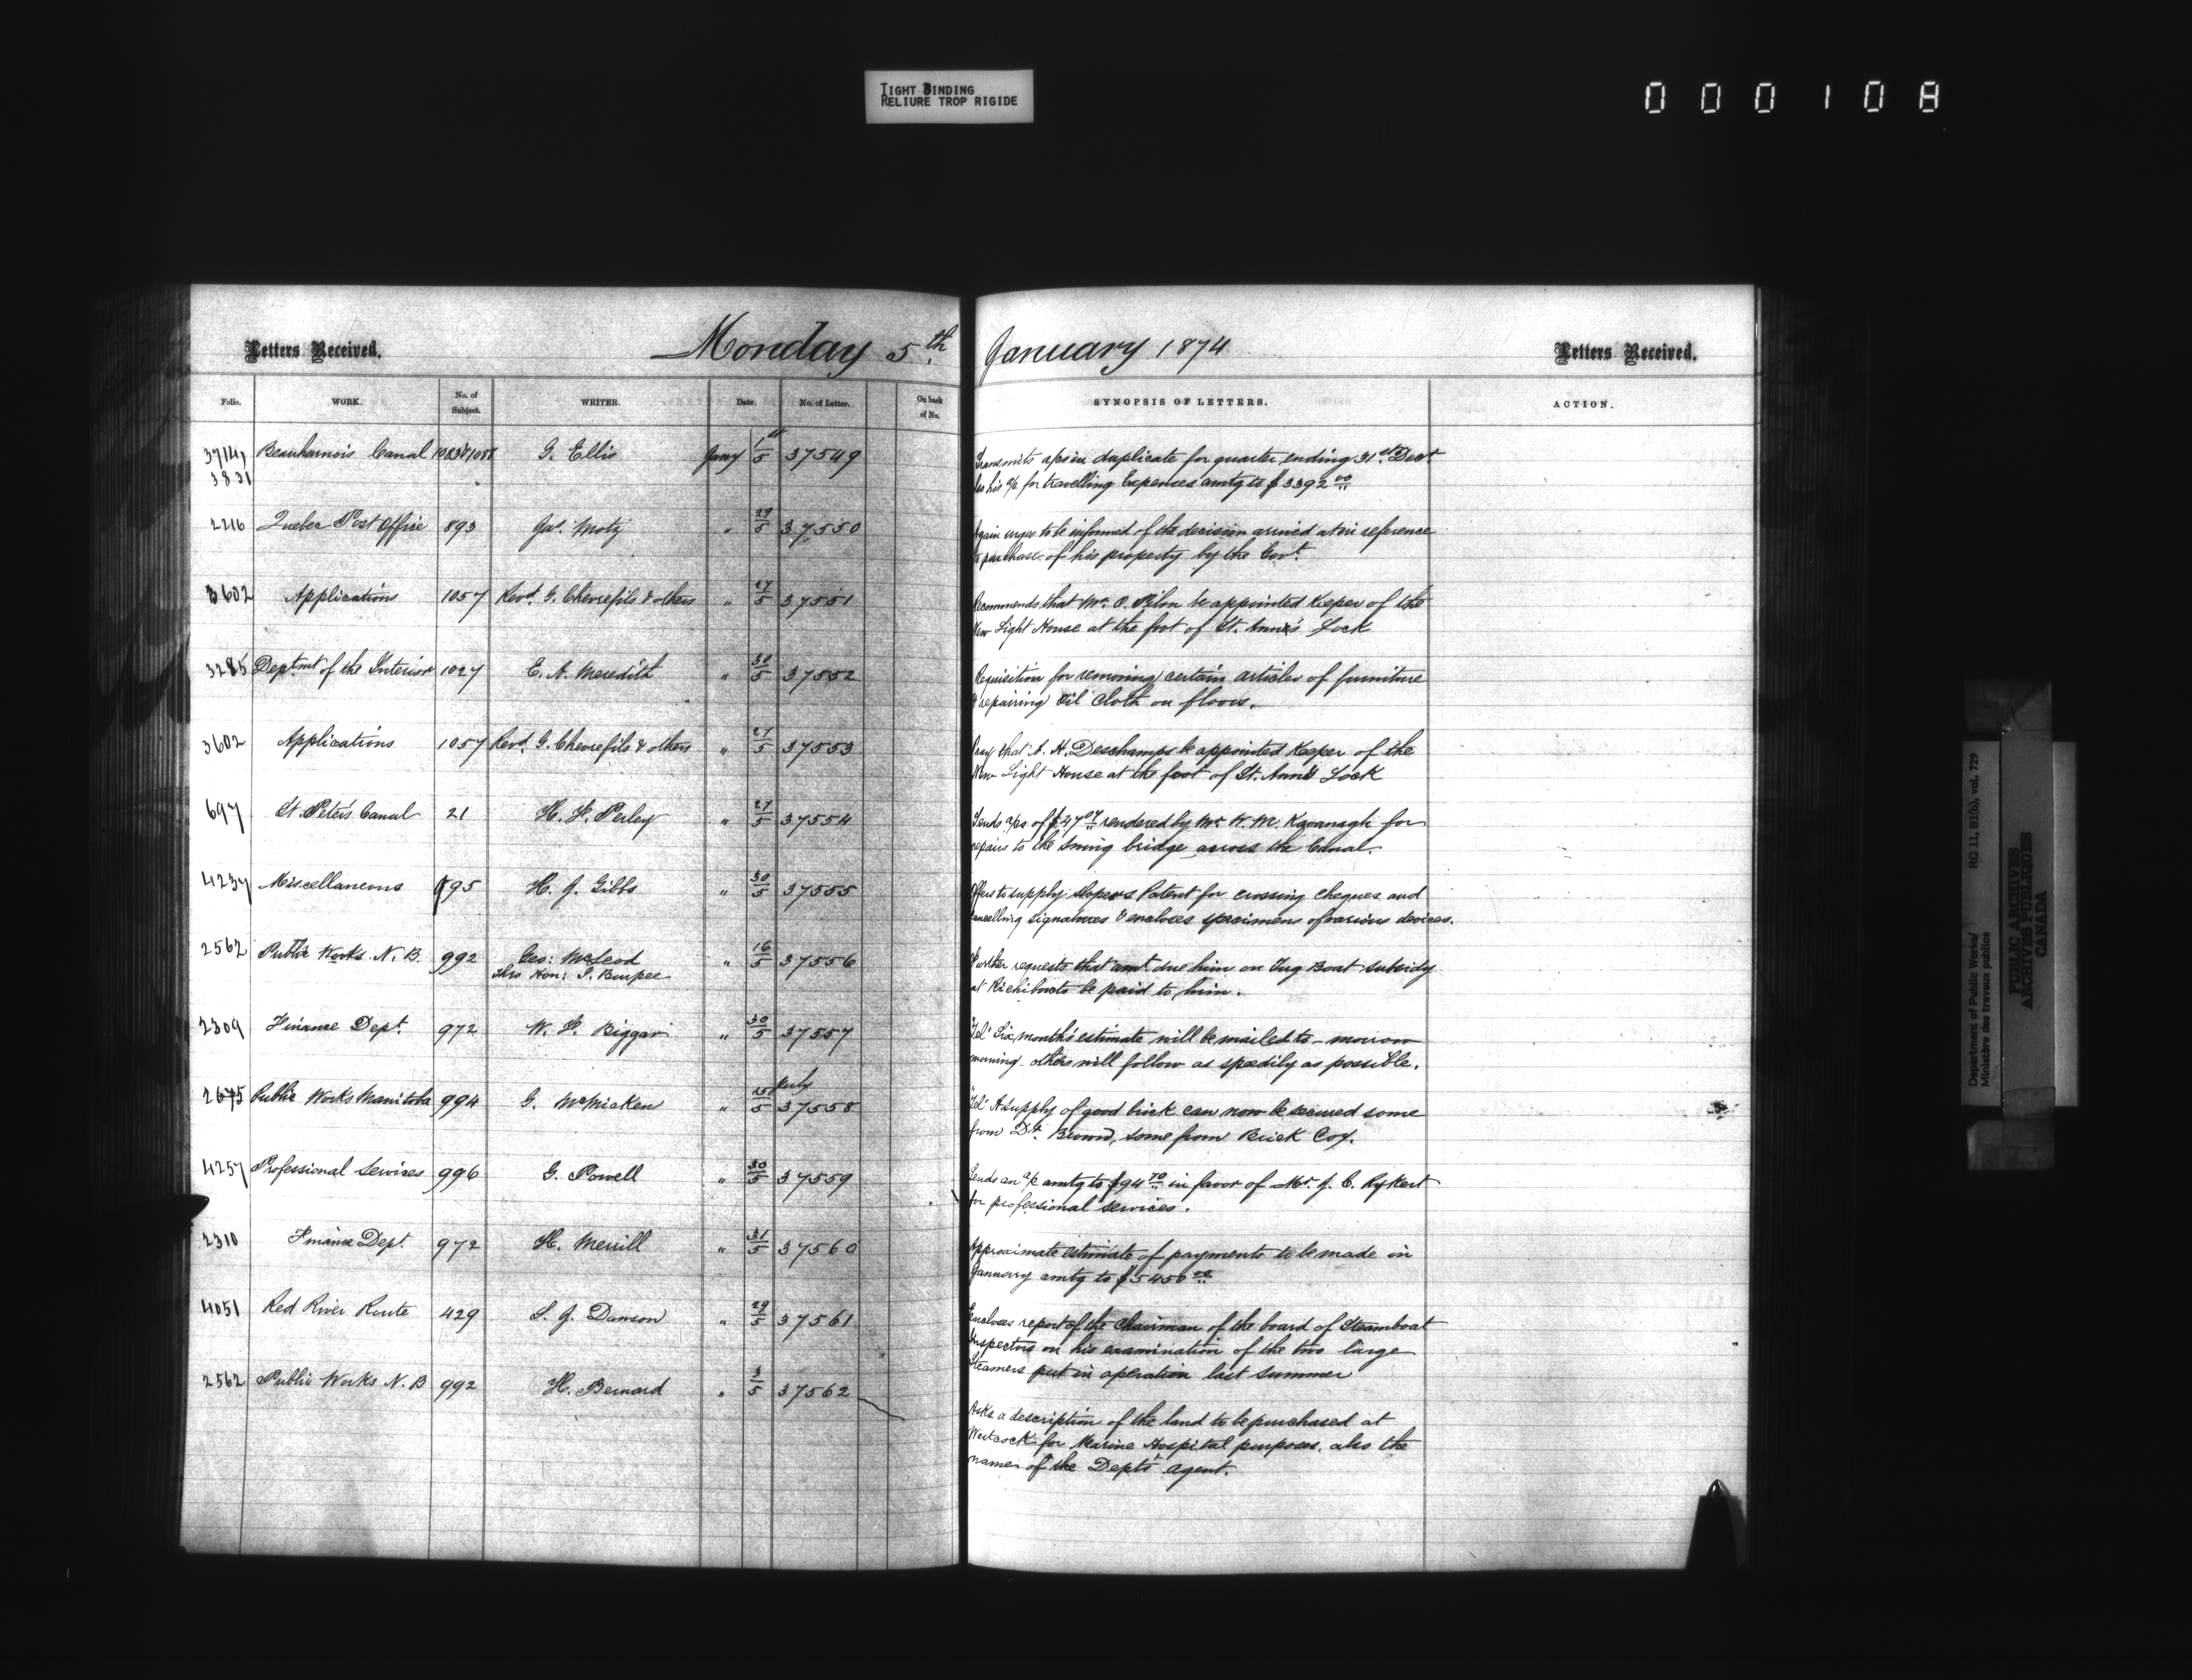 TIGHT BINDING
RELIURE TROP RIGIDE
000108
Letters Received.
Monday 5th. January 1874
Letters Received.
Folio. WORK. No. of Subject. WRITER. Date. No. of Letter. On back of No. SYNOPSIS OF LETTERS. ACTION.
Beauharnois Canal G. Ellis Jany 1st/5 37549 Transmits a/cs in duplicate for quarter ending 31st Decr
3831 his a/c for travelling Expenses amtg to $3392 00
2216 Quebec Post Office 893 Jas. Motz " 29/5 37550 Again urges to be informed of the decision arrived at in reference
to purchase of his property by the Govt.
3602 Applications 1057 Revd. G. Chevrefils & others " 27/5 37551 Recommends that Mr. O. Pilon be appointed Keeper of the
New Light House at the foot of St. Anne's Lock
3285 Deptmt of the Interior 1027 E. A. Meredith " 30/5 37552 Requisition for removing certain articles of furniture
& repairing Oil Cloth on floors.
3602 Applications 1057 Revd. G. Chevrefils & others " 27/5 37553 Pray that A. H. Deschamps be appointed Keeper of the
New Light House at the foot of St. Ann's Lock
697 St. Peter's Canal 21 H. F. Perley " 27/5 37554 Sends a/cs of $47 rendered by Mr W. M. Kavanagh for
repairs to the Swing bridge across the Canal.
4237 Miscellaneous 595 H. J. Gibbs " 30/5 37555 Offers to supply Slopers Patent for crossing cheques and
cancelling signatures & encloses specimens of various devices.
2562 Public Works N. B. 992 Geo: McLeod " 16/5 37556 Further requests that amt. due him on Tug Boat subsidy
thro Hon: I. Burpee at Richibucto be paid to him.
2309 Finance Dept. 972 W. F. Biggar " 30/5 37557 "Tel" Six months' estimate will be mailed to-morrow
morning - others will follow as speedily as possible.
2675 Public Works Manitoba 994 G. McMicken " 37558 "Tel" A supply of good brick can now be secured some
from Dr. Bound, some from Brick Coy.
4257 Professional Services 996 G. Powell " 30/5 37559 Sends an a/c amtg to $94 70 in favor of Mr. J. C. Rykert
for professional services.
2310 Finance Dept. 972 H. Merrill " 31/5 37560 Approximate estimate of payments to be made in
January amtg to $5450 00
4051 Red River Route 429 S. J. Dawson " 29/5 37561 Encloses report of the Chairman of the board of Steamboat
Inspectors on his examination of the two large
Steamers put in operation last summer
2562 Public Works N. B 992 H. Bernard " 3/5 37562
Asks a description of the land to be purchased at
Westcock for Marine Hospital purposes, also the
name of the Dept's agent.
Department of Public Works/ RG 11, B1(b), vol. 729
Ministère des travaux publics
PUBLIC ARCHIVES
ARCHIVES PUBLIQUES
CANADA